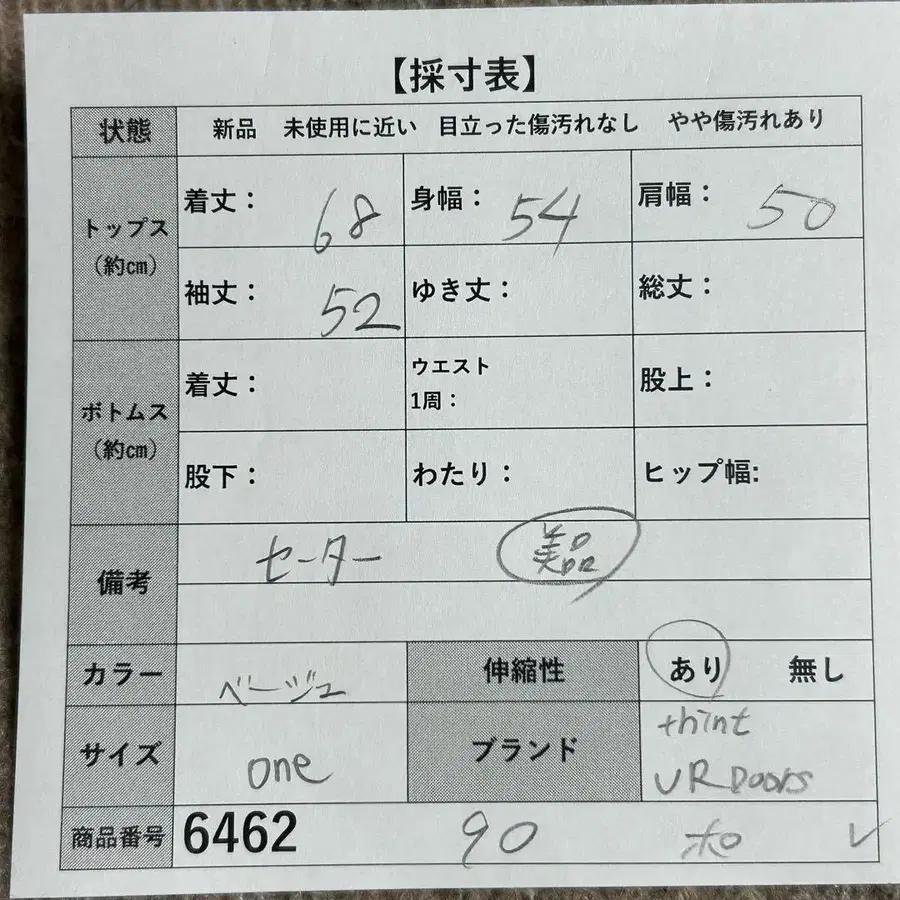 【採寸表】
状態 新品 未使用に近い 目立った傷汚れなし やや傷汚れあり
トップス（約㎝） 着丈： 68 身幅： 54 肩幅： 50
袖丈： 52 ゆき丈： 総丈：
ボトムス（約㎝） 着丈： ウエスト1周： 股上：
股下： わたり： ヒップ幅:
備考 セーター 美品
カラー ベージュ 伸縮性 あり 無し
サイズ one ブランド thint
URDoors
商品番号 6462 90 ホロ ✓